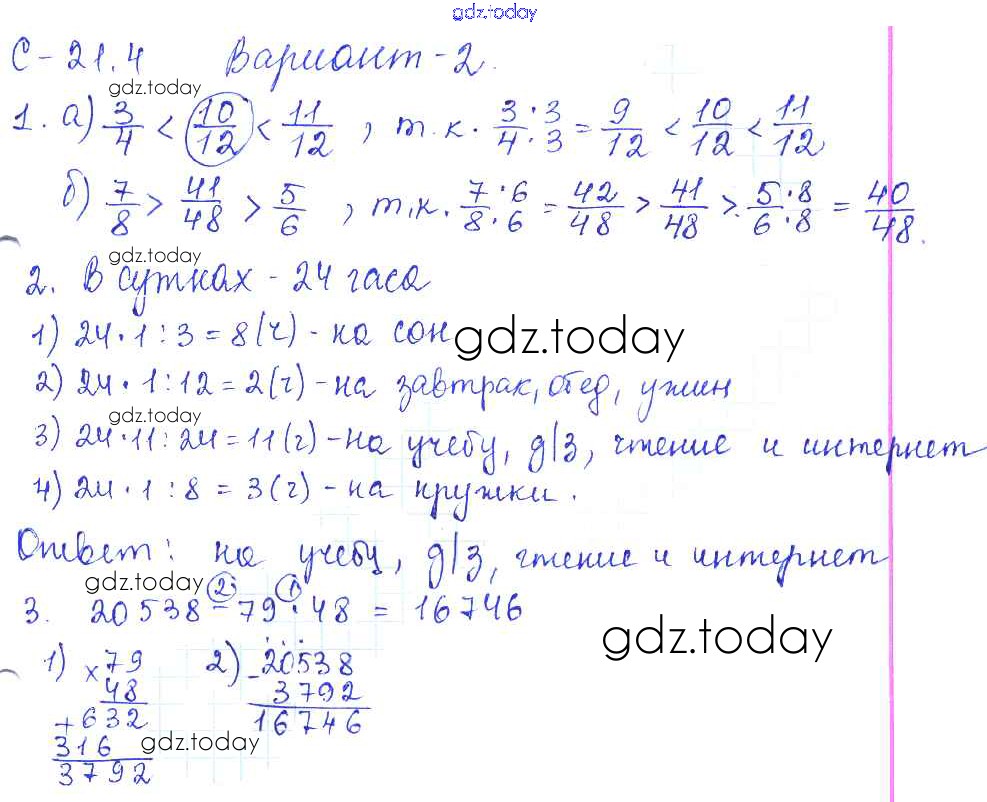 gdz.today
С-21.4 Вариант-2.
gdz.today
1. а) 3/4 < 10/12 < 11/12, т.к. 3·3/4·3 = 9/12 < 10/12 < 11/12,
б) 7/8 > 41/48 > 5/6, т.к. 7·6/8·6 = 42/48 > 41/48 > 5·8/6·8 = 40/48.
gdz.today
2. В сутках - 24 часа
1) 24·1:3=8(ч) - на сон
gdz.today
2) 24·1:12=2(ч) - на завтрак, обед, ужин
gdz.today
3) 24·11:24=11(ч) - на учебу, д/з, чтение и интернет
4) 24·1:8=3(ч) - на кружки.
Ответ: на учебу, д/з, чтение и интернет
gdz.today
2 1
3. 20538-79·48 = 16746
gdz.today
1) ×79 2) -20538
48 3792
+632 16746
316
gdz.today
3792